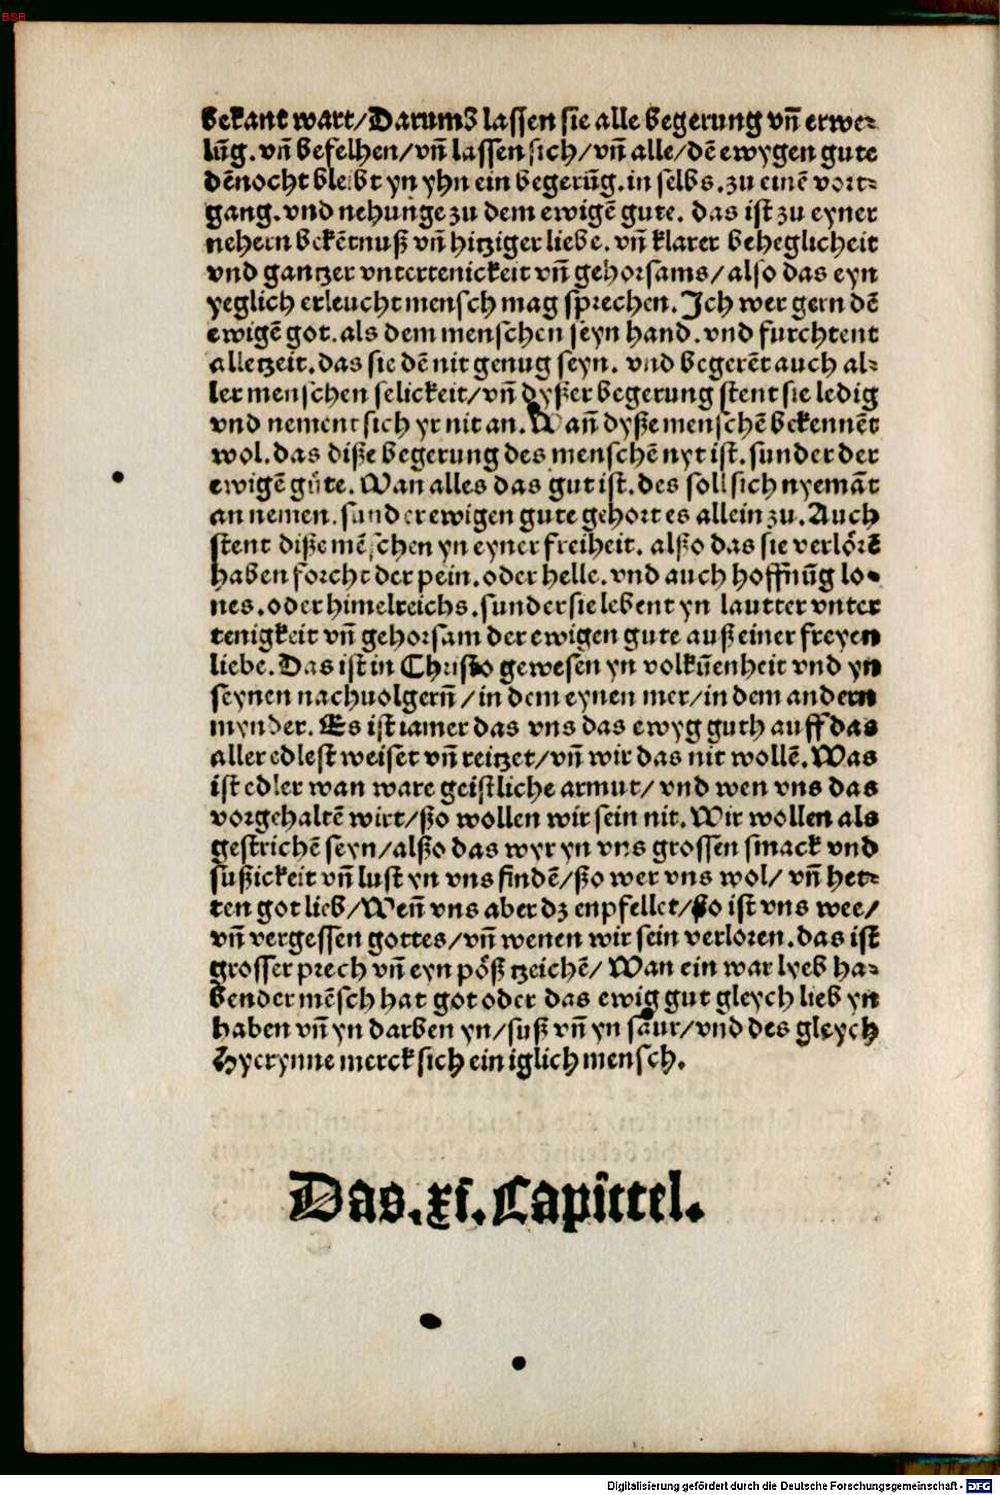 BSB
bekant wart/Darumb lassen sie alle begerung vñ erwe⸗
lũg. vñ befelhen/vñ lassen sich/vñ alle/dē ewygen gute
dēnocht bleibt yn yhn ein begerũg. in selbs. zu einē vort⸗
gang. vnd nehunge zu dem ewigē gute. das ist zu eyner
nehern bekētnuß vñ hitziger liebe. vñ klarer beheglicheit
vnd gantzer vntertenickeit vñ gehorsams/also das eyn
yeglich erleucht mensch mag sprechen. Ich wer gern dē
ewigē got. als dem menschen seyn hand. vnd furchtent
alletzeit. das sie dē nit genug seyn. vnd begerēt auch al⸗
ler menschen selickeit/vñ dyßer begerung stent sie ledig
vnd nement sich yr nit an. Wañ dyße menschē bekennēt
wol. das diße begerung des menschē nyt ist. sunder der
ewigē gůte. Wan alles das gut ist. des soll sich nyemāt
an nemen. sunder ewigen gute gehort es allein zu. Auch
stent diße mēschen yn eyner freiheit. alßo das sie verlörē
haben forcht der pein. oder helle. vnd auch hoffnũg lo⸗
nes. oder himelreichs. sunder sie lebent yn lautter vnter
tenigkeit vñ gehorsam der ewigen gute auß einer freyen
liebe. Das ist in Christo gewesen yn volkũenheit vnd yn
seynen nachuolgerñ/in dem eynen mer/in dem andern
mynder. Es ist iamer das vns das ewyg guth auff das
aller edlest weiset vñ reitzet/vñ wir das nit wollē. Was
ist edler wan ware geistliche armut/vnd wen vns das
vorgehaltē wirt/ßo wollen wir sein nit. Wir wollen als
gestrichē seyn/alßo das wyr yn vns grossen smack vnd
sußickeit vñ lust yn vns findē/ßo wer vns wol/ vñ het⸗
ten got lieb/Weñ vns aber dz enpfellet/ßo ist vns wee/
vñ vergessen gottes/vñ wenen wir sein verloren. das ist
grosser prech vñ eyn pöß tzeichē/ Wan ein war lyeb ha⸗
bender mēsch hat got oder das ewig gut gleych lieb yn
haben vñ yn darben yn/suß vñ yn saur/vnd des gleych
Hyerynne merck sich ein iglich mensch.
Das. xi. Capittel.
Digitalisierung gefördert durch die Deutsche Forschungsgemeinschaft - DFG